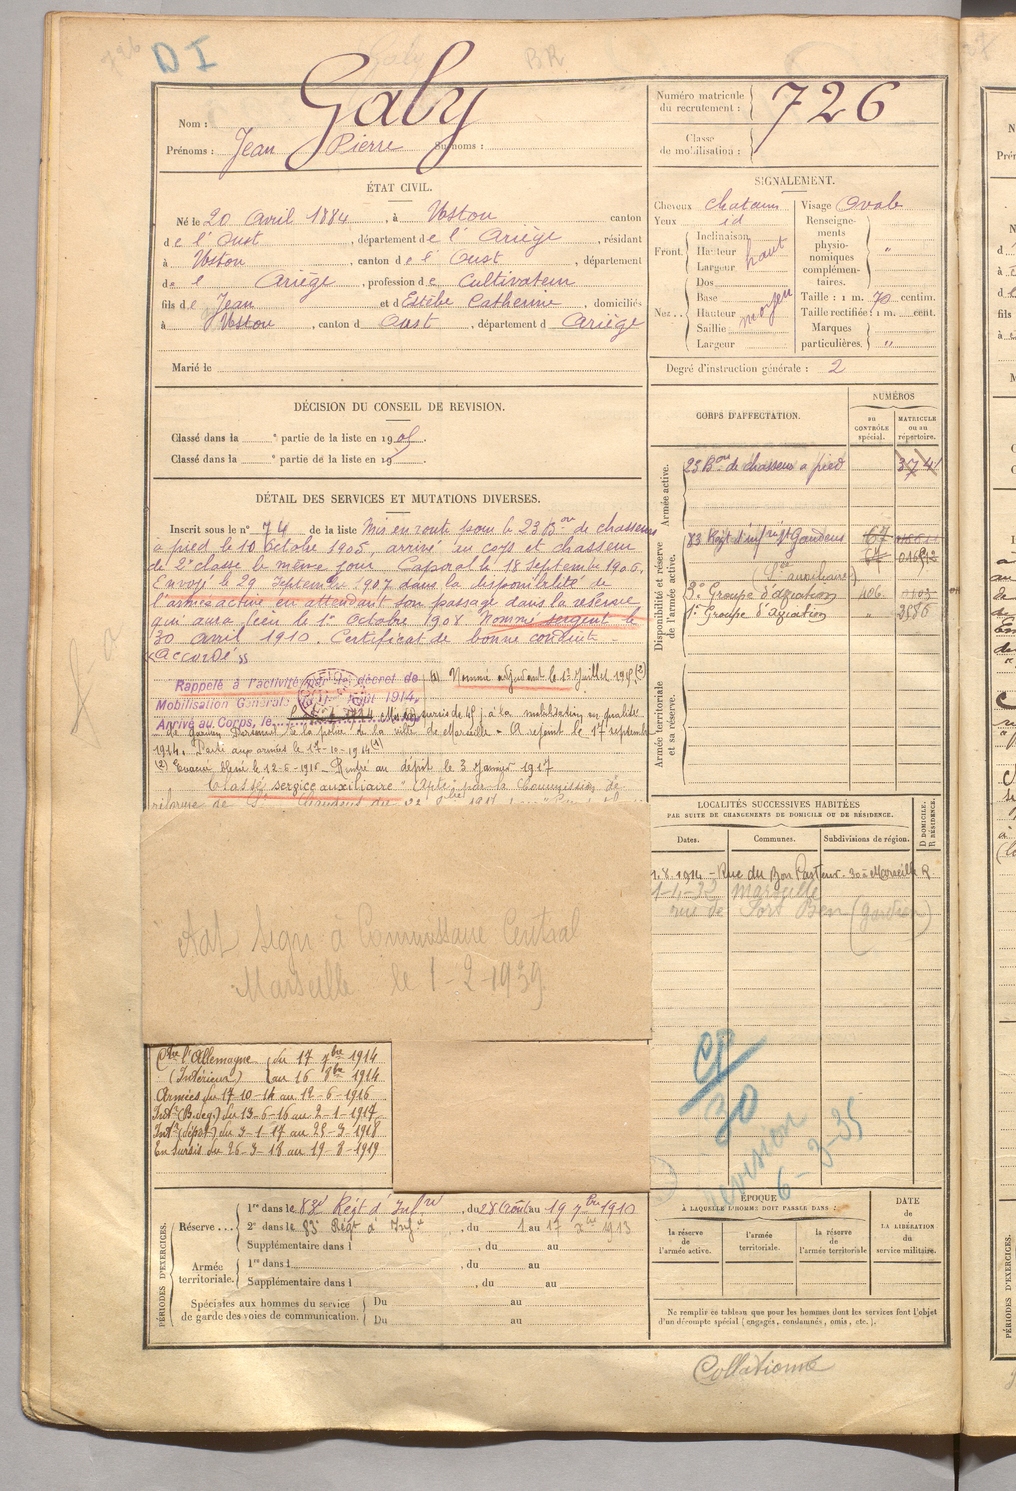 D I
BR
Nom : Gaby
Prénoms : Jean Pierre Surnoms :
Numéro matricule du recrutement : 726
Classe de mobilisation :
ÉTAT CIVIL.
Né le 20 Avril 1884, à Ustou canton
de l'Oust, département de l'Ariège, résidant
à Ustou, canton de l'Oust, département
de l'Ariège, profession de Cultivateur
fils de Jean et d Estèbe Catherine, domiciliés
à Ustou, canton d Oust, département d Ariège
Marié le
SIGNALEMENT.
Cheveux chatains
Yeux id
Front. Inclinaison Hauteur Largeur haut
Nez.. Dos Base Hauteur Saillie Largeur moyen
Visage Ovale
Renseignements physionomiques complémentaires. "
Taille : 1 m. 70 centim.
Taille rectifiée : 1 m. cent.
Marques particulières. "
Degré d'instruction générale : 2
DÉCISION DU CONSEIL DE REVISION.
Classé dans la e partie de la liste en 1905.
Classé dans la e partie de la liste en 19 .
CORPS D'AFFECTATION.
NUMÉROS
au CONTRÔLE spécial.
MATRICULE ou au répertoire.
Armée active.
23 Bon de chasseurs à pied 3741
Disponibilité et réserve de l'armée active.
83 Régt d'infie St Gaudens 67
67 01692
(Sce auxiliaire)
3e Groupe d'aviation 406
1r Groupe d'aviation " 3686
Armée territoriale et sa réserve.
DÉTAIL DES SERVICES ET MUTATIONS DIVERSES.
Inscrit sous le n° 74 de la liste Mis en route pour le 23 Bon de chasseurs
à pied le 10 Octobre 1905, arrivé au corps et chasseur
de 2e classe le même jour. Caporal le 18 septembre 1906.
Envoyé le 29 Septembre 1907 dans la disponibilité de
l'armée active en attendant son passage dans la réserve
qui aura lieu le 1er Octobre 1908 Nommé sergent le
30 avril 1910. Certificat de bonne conduite
"Accordé"
Rappelé à l'activité par le décret de
Mobilisation Générale du 1er Août 1914.
Arrivé au Corps, le
(1) Nommé adjudant le 1er Juillet 1915 (2)
sursis de 45 j à la mobilisation en qualité
de Gardien Personnel de la police de la ville de Marseille. A rejoint le 17 septembre
1914. Parti aux armées le 17-10-1914 (1)
(2) Evacué blessé le 12-6-1916. Rentré au dépôt le 3 Janvier 1917
Classé service auxiliaire "Apte" par la Commission de
réforme de St Gaudens du
Adt Sign à Commissaire Central
Marseille le 1-2-1939
Ctre l'Allemagne du 17 7bre 1914
(Intérieur) au 16 8bre 1914
Armées du 17-10-14 au 12-6-1916
Intr (B. deg.) du 13-6-16 au 2-1-1917
Intr (dépôt) du 3-1-17 au 25-3-1918
En Sursis du 26-3-18 au 19-8-1919
LOCALITÉS SUCCESSIVES HABITÉES
PAR SUITE DE CHANGEMENTS DE DOMICILE OU DE RÉSIDENCE.
Dates. Communes. Subdivisions de région. D DOMICILE. R RÉSIDENCE.
1.8.1914 - Rue du Bon Pasteur. 30 à Marseille R.
Marseille
rue de Fort (gardien)
CP/30
revision
6-3-35
PÉRIODES D'EXERCICES.
Réserve... 1re dans le 83e Régt d'Infie, du 28 Août au 19 7bre 1910
2e dans le 83e Régt d'Infie, du 1 au 17 1913
Supplémentaire dans l , du au
Armée territoriale. 1re dans l , du au
Supplémentaire dans l , du au
Spéciales aux hommes du service de garde des voies de communication. Du au
Du au
ÉPOQUE
À LAQUELLE L'HOMME DOIT PASSER DANS :
la réserve de l'armée active.
l'armée territoriale.
la réserve de l'armée territoriale
DATE de LA LIBÉRATION du service militaire.
Ne remplir ce tableau que pour les hommes dont les services font l'objet
d'un décompte spécial (engagés, condamnés, omis, etc.).
Collationné